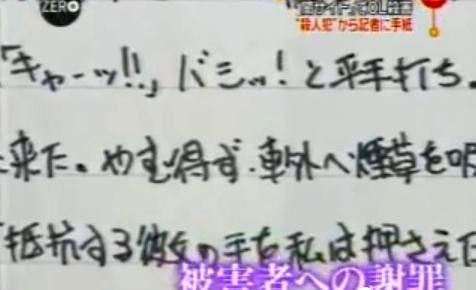 ZERO
闇サイト OL殺害
"殺人犯"から記者に手紙
「キャーッ!!」バシッ!と平手打ち。
来た。やむ得ず、車外へ煙草を
抵抗する彼女の手を私は押さえた
被害者への謝罪